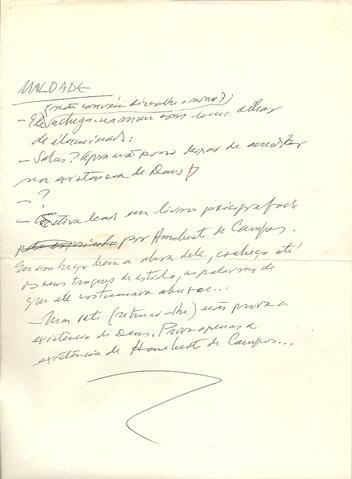 MALDADE
(não convém dizer-lhe o nome)
– Ele achega-se a mim com seus olhos
de iluminado:
– Sabes? Agora não posso deixar de acreditar
na existência de Deus!
– ?
– Estive lendo um livro psicografado
por Humberto de Campos.
Eu conheço bem a obra dele, conheço até
os seus truques de estilo, as palavras de
que ele costumava abusar...
– Mas isto (retruco-lhe) não prova a
existência de Deus. Prova apenas a
existência de Humberto de Campos...